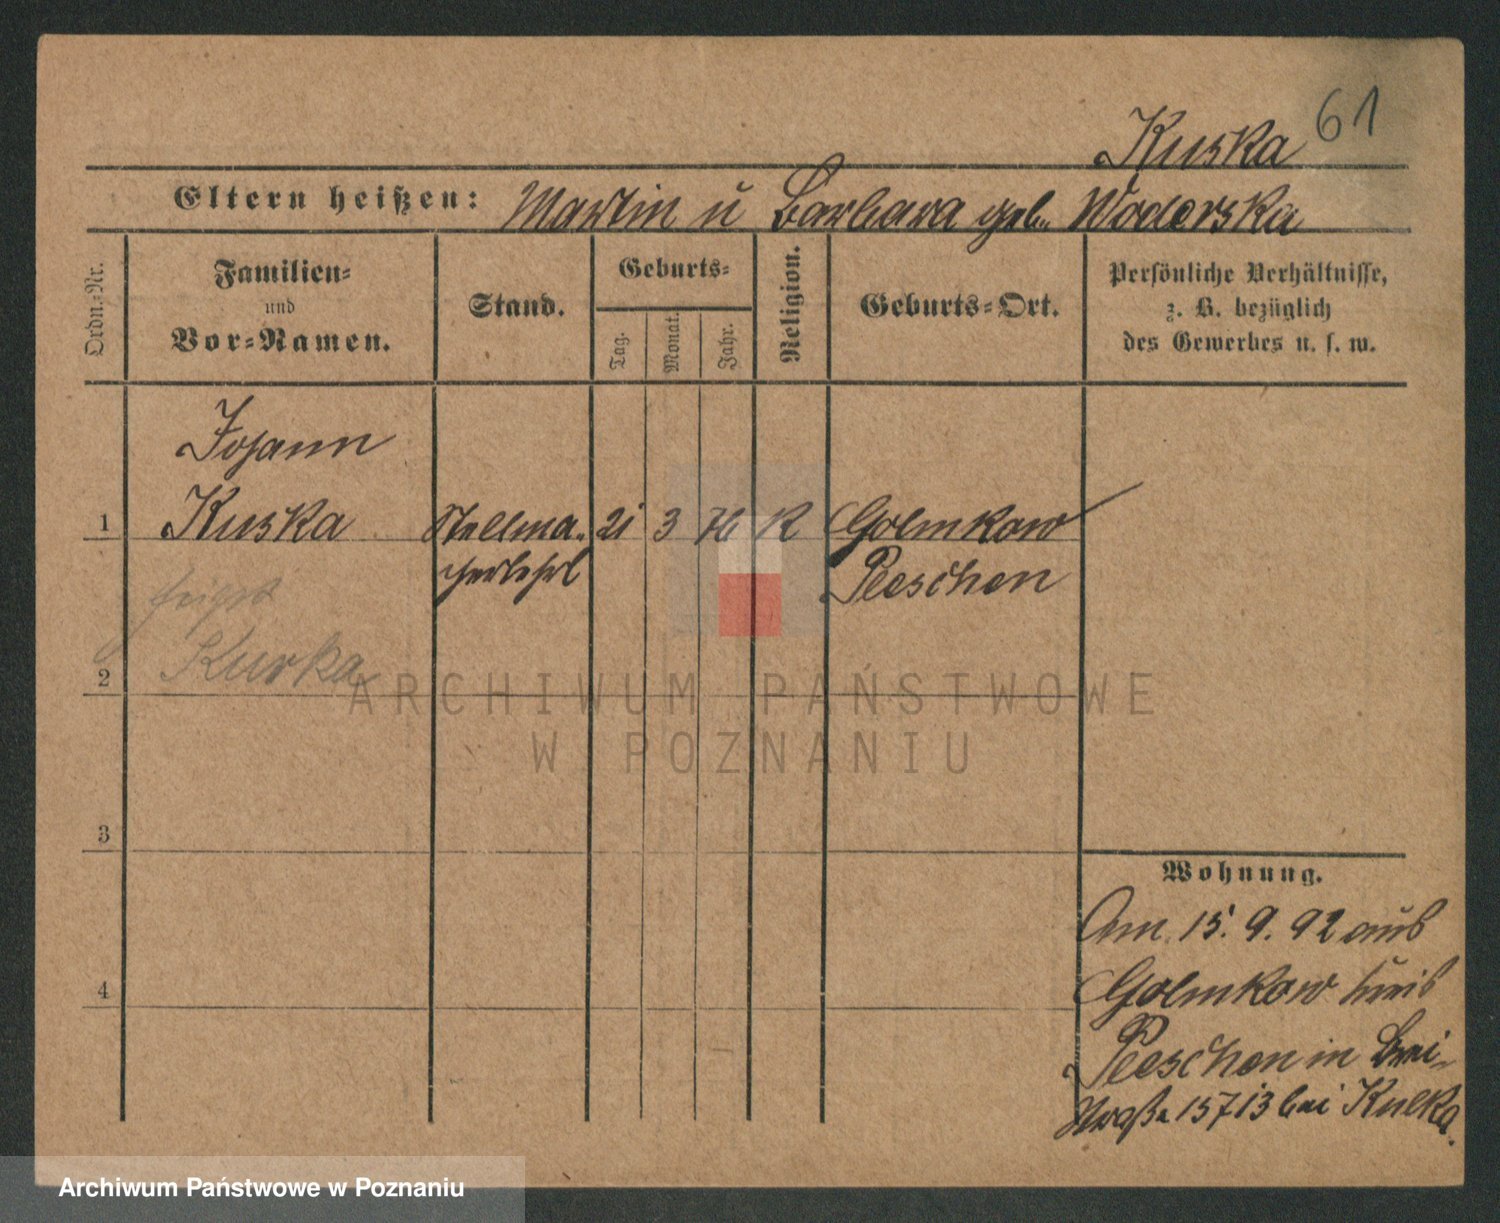 61
Kuska
Eltern heißen: Martin u Barbara geb. Woderska
Ordn.=Nr.
Familien=
und
Vor=Namen.
Stand.
Geburts=
Tag.
Monat.
Jahr.
Religion.
Geburts=Ort.
Persönliche Verhältnisse,
z. B. bezüglich
des Gewerbes u. s. w.
Johann
1 Kuska Stellma- 21 3 76 K Golmkow
cherlehrl Pleschen
Kurka
2
3
4
Wohnung.
Am 15. 9. 92 aus
Golmkow Kreis
Pleschen in Brei-
straße 15713 bei Kulka.
ARCHIWUM PAŃSTWOWE
W POZNANIU
Archiwum Państwowe w Poznaniu